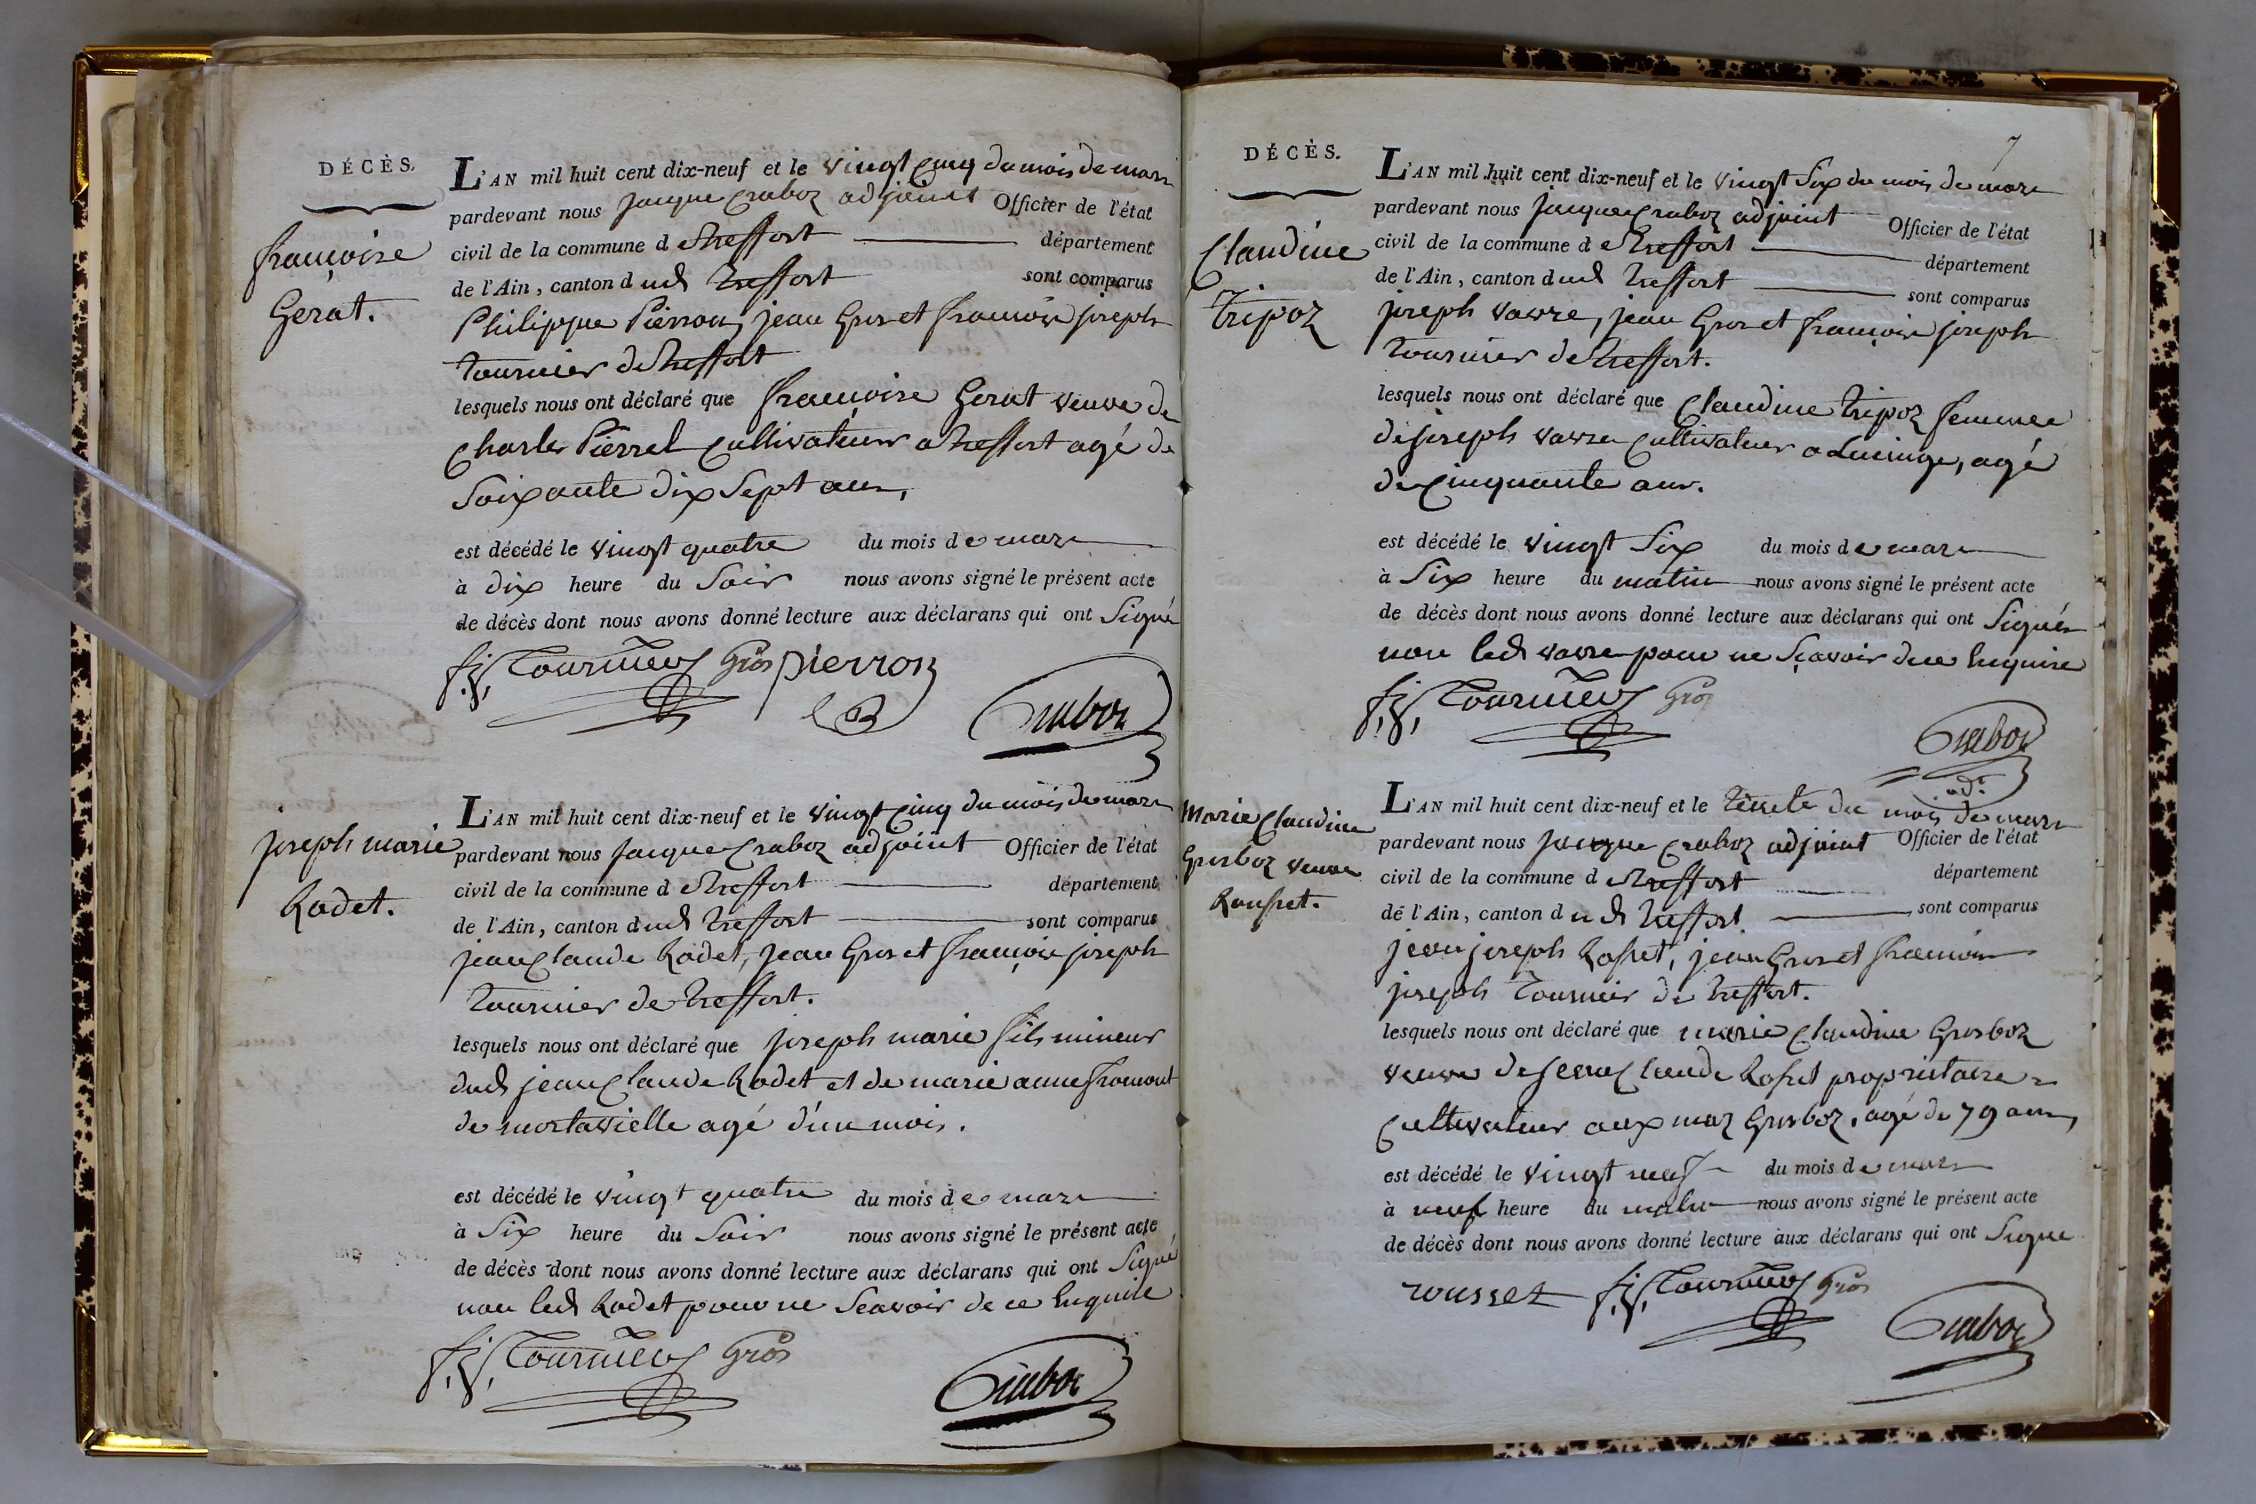 DÉCÈS.
françoise
Gerat.
L'AN mil huit cent dix-neuf et le vingt cinq du mois de mars
pardevant nous jacque Craboz adjoint Officier de l'état
civil de la commune d e treffort département
de l'Ain, canton d ud treffort sont comparus
Philippe Pierron, jean Gros et françois joseph
tournier de treffort
lesquels nous ont déclaré que françoise Gerat veuve de
Charles Pierrel cultivateur a treffort agé de
Soixante dix Sept ans,
est décédé le vingt quatre du mois d e mars
à dix heure du Soir nous avons signé le présent acte
de décès dont nous avons donné lecture aux déclarans qui ont Signé
f. j. Tournier Gros pierron
Craboz
joseph marie
Rodet.
L'AN mil huit cent dix-neuf et le vingt cinq du mois de mars
pardevant nous jacque Craboz adjoint Officier de l'état
civil de la commune d e treffort département
de l'Ain, canton d ud treffort sont comparus
jean Claude Rodet, jean Gros et françois joseph
tournier de treffort.
lesquels nous ont déclaré que joseph marie fils mineur
dud jean Claude Rodet et de marie anne fromont
de montavielle agé d'un mois.
est décédé le vingt quatre du mois d e mars
à Six heure du Soir nous avons signé le présent acte
de décès dont nous avons donné lecture aux déclarans qui ont Signé
non led Rodet pour ne Scavoir de ce Enquile
f. j. Tournier Gros
Craboz
7
DÉCÈS.
Claudine
tripoz
L'AN mil huit cent dix-neuf et le vingt Six du mois de mars
pardevant nous jacque Craboz adjoint Officier de l'état
civil de la commune d e treffort département
de l'Ain, canton d ud treffort sont comparus
joseph vavre, jean Gros et françois joseph
tournier de treffort.
lesquels nous ont déclaré que Claudine tripoz femme
de joseph vavre Cultivateur a Lucinge, agé
de Cinquante ans.
est décédé le vingt Six du mois d e mars
à Six heure du matin nous avons signé le présent acte
de décès dont nous avons donné lecture aux déclarans qui ont Signés
non led vavre pour ne Sçavoir de ce Enquire
f. j. Tournier Gros
Craboz
adt
Marie Claudine
Grosboz veuve
Rousset.
L'AN mil huit cent dix-neuf et le trente du mois de mars
pardevant nous jacque Craboz adjoint Officier de l'état
civil de la commune d e treffort département
de l'Ain, canton d u d treffort sont comparus
jean joseph Rosset, jean Gros et françois
joseph tournier de treffort.
lesquels nous ont déclaré que marie Claudine Grosboz
veuve de jean Claude Rosset propriétaire
Cultivateur aux maz Grosboz, agé de 79 ans,
est décédé le vingt neuf du mois d e mars
à neuf heure du matin nous avons signé le présent acte
de décès dont nous avons donné lecture aux déclarans qui ont Signe
rousset f. j. Tournier Gros
Craboz